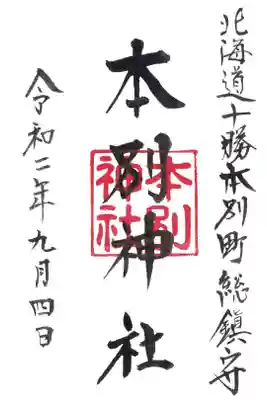 北海道十勝本別町総鎮守
本別神社
本別神社
令和二年九月四日